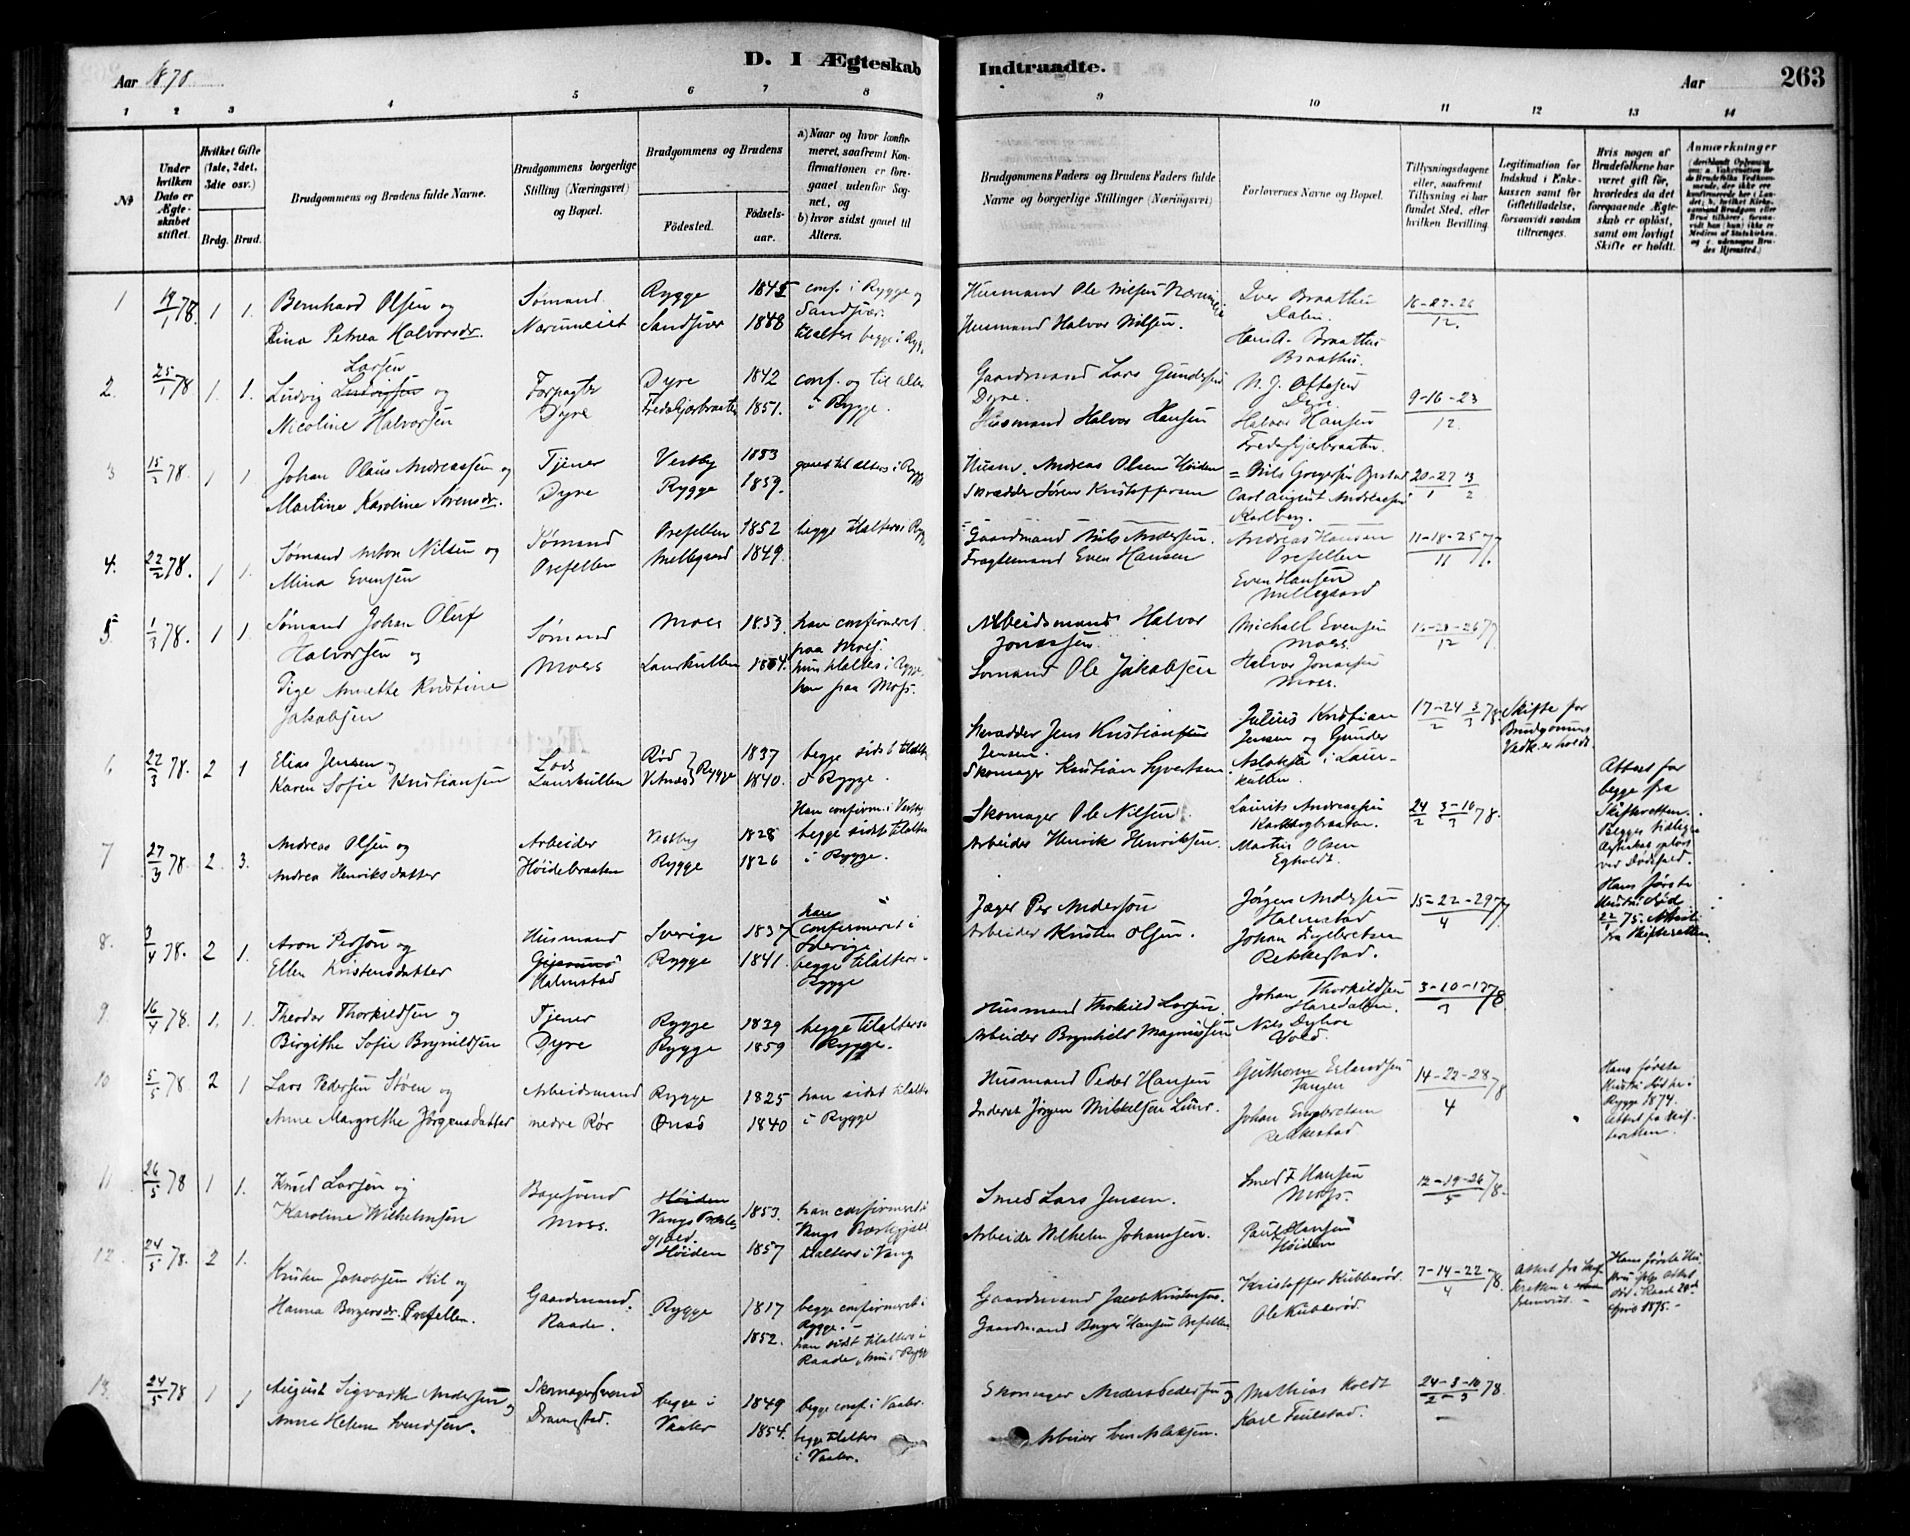 Aar 1878 D. I Ægteskab Indtraadte. Aar 263
1 2 3 4 5 6 7 8 9 10 11 12 13 14
No
Under hvilken Dato er Ægteskabet stiftet.
Hvilket Gifte (1ste, 2det, 3die osv.)
Brdg. Brud.
Brudgommens og Brudens fulde Navne.
Brudgommens borgerlige Stilling (Næringsvei) og Bopæl.
Brudgommens og Brudens
Fødested. Fødselsaar.
a) Naar og hvor konfirmeret, saafremt Konfirmationen er foregaaet udenfor Sognet, og
b) hvor sidst gaaet til Alters.
Brudgommens Faders og Brudens Faders fulde Navne og borgerlige Stillinger (Næringsvei)
Forlovernes Navne og Bopæl.
Tillysningsdagene eller, saafremt Tillysning ei har fundet Sted, efter hvilken Bevilling.
Legitimation for Indskud i Enkekassen samt for Giftetilladelse, forsaavidt saadan tiltrænges.
Hvis nogen af Brudefolkene har været gift før, hvorledes da det foregaaende Ægteskab er opløst, samt om lovligt Skifte er holdt.
Anmærkninger
1 19/1 78. 1 1. Bernhard Olsen og
Sømand Rygge 1845 conf. i Rygge og
Husmand Ole Nilsen
Iver Braathen Dalen.
12.
Petrea Halvorsdr.
Sandsvær 1848 Sandsvær.
Husmand Halvor Nilsen.
Braathen.
2. 25/1 78 1. 1. Ludvig Larsen og
Forpagter Dyre 1842 conf. og til alters
Gaardmand Lars Gundersen Dyre.
N. J. Ottesen Dyre.
9-16-23/12.
Nicoline Halvorsen
Dyre 1851. i Rygge.
Husmand Halvor Hansen
Halvor Hansen
3 15/2 78. 1 1 Johan Olaus Andreassen og
Tjener Vestby 1853 gaaet til alters i Rygge
Husm. Andreas Olsen Høiden
20-27/1 3/2
Martine Karoline Sørensdr.
Dyre Rygge 1859.
Skrædder Søren Kristoffersen
Carl August Andreassen Karlberg.
4. 22/2 78. 1 1. Sømand Anton Nilsen og
Sømand Orefellen 1852 begge tilalters i Rygge
Gaardmand Nils Andersen.
Andreas Hansen Orefellen
11-18-25/11 77.
Mina Evensen
Orefellen Mellegaard 1849.
Fragtemand Even Hansen
Even Hansen Mellegaard
5 1/3 78. 1 1. Sømand Johan Oluf Halvorsen og
Sømand Moss 1853. han confirmeret paa Moss.
Arbeidsmand Halvor Jonassen.
Michael Evensen Moss.
Pige Annette Kristine Jakobsen
Moss Larskullen 1854. hun tilalters i Rygge, han paa Moss.
Sømand Ole Jakobsen
Halvor Jonassen Moss.
6 22/3 78. 2 1 Elias Jensen og
Lods Rød Rygge 1837 begge sidst tilalters
Skrædder Jens Kristiansen Jensen.
Julius Kristian Jensen og Gunder
17-24/2 3/3 78
Skifte for Brudgommens Vedk. er holdt.
Karen Sofie Kristiansen
Larskullen 1840. i Rygge.
Skomager Kristian Syvertsen
7 27/3 78 2. 3. Andreas Olsen og
Arbeider Vestby 1828 Han confirm. i Vestby begge sidst tilalters
Skomager Ole Nilsen
Laurits Andreassen
24/2 3-10/3 78.
Attest for begge fra Skifteretten. Begges tidligere Ægteskab opløst ved Dødsfald.
Andrea Henriksdatter
Høidebraaten Rygge 1826 i Rygge.
Arbeider Henrik Henriksen.
Martin Olsen Egholdt.
8. 3/4 78. 2 1 Aron Persøn og
Husmand Sverige 1837 han confirmeret i Sverige
Jæger Per Andersøn
Jørgen Andersen Halmstad
15-22-29/4 77
Hans første Hustru død 22/1 75. Attest fra Skifteretten.
Ellen Kristensdatter
Halmstad Rygge 1841. begge tilalters i Rygge
Arbeider Kristen Olsen.
Johan Engebretsen Rekkestad.
9. 16/4 78. 1. 1. Theodor Thorkildsen og
Tjener Rygge 1829 begge tilalters i Rygge.
Husmand Thorkild Larsen
Johan Thorkildsen Haredalen.
3-10-17/3 78.
Birgithe Sofie Brynildsen
Dyre Rygge 1859
Arbeider Brynhild Magnussen
Nils Dybro Vold.
10 5/5 78 2 1 Lars Pedersen Støen og
Arbeidsmand Rygge 1825 han sidst tilalters
Husmand Peder Hansen
Guthorm Erlandsen Tangen
14-22-28/4 78
Hans første Hustru død her i Rygge 1874. Attest fra Skifteretten.
Anne Margrethe Jørgensdatter
nedre Rør Onsø 1840 i Rygge
Inderst Jørgen Mikkelsen
Johan Engebretsen Rekkestad
11 26/5 78 1 1. Knud Larsen og
Bagersvend Høiden Vangs Præstegjæld. 1853. han confirmeret i Vangs Præstegjæld
Smed Lars Jensen.
Smed F. Hansen Moss.
12-19-26/5 78.
Karoline Wilhelmsen
Moss. Høiden 1857 tilalters i Vang
Arbeider Wilhelm Johannsen.
Paul Hansen Høiden
12. 24/5 78. 2 1. Kristen Jakobsen Kil og
Gaardmand. Rygge 1817 begge confirmeret i Rygge.
Gaardmand Jacob Kristensen.
Kristoffer Kubberød.
7-14-22/4 78
Attest fra Skifteretten fremvist.
Hans første Hustru ifølge Attest død i Raade 24de April 1875.
Hanna Borgersdr. Orefellen.
Raade. 1852. han sidst tilalters i Raade, hun i Rygge
Gaardmand Borger Hansen Orefellen
Ole Kubberød.
13. 24/5 78 1 1 August Sigvarth Andersen og
Skomagersvend begge i 1849 begge conf. i Vaaler.
Skomager Anders Pedersen
Mathias Holdt
24/2-3-10/3 78.
Anne Helene Svendsen.
Dramstad. Vaaler 1854. begge tilalters i Vaaler.
Arbeider
Karl